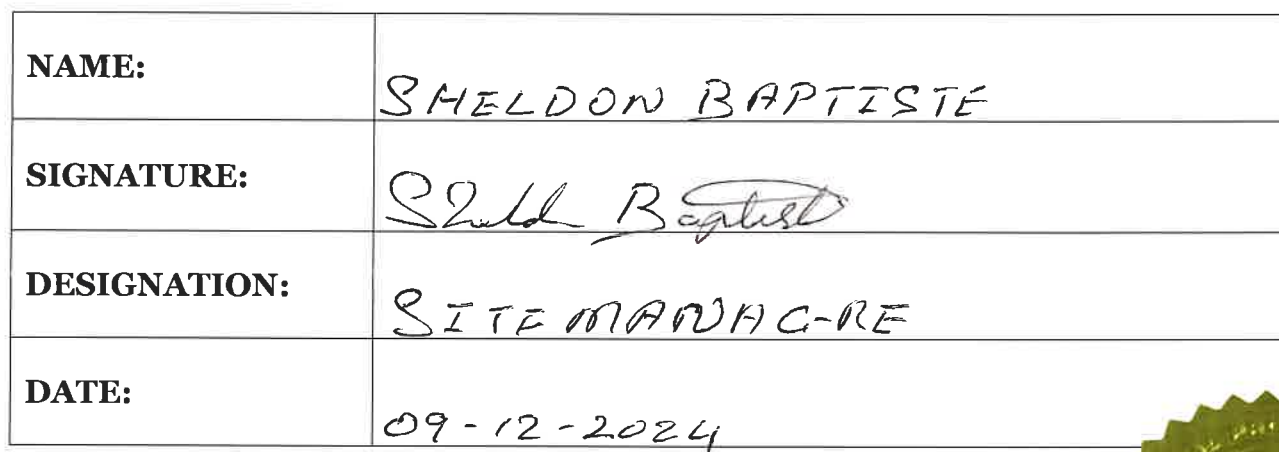 NAME: SHELDON BAPTISTE
SIGNATURE: Sheld Baptist
DESIGNATION: SITE MANAGRE
DATE: 09-12-2024